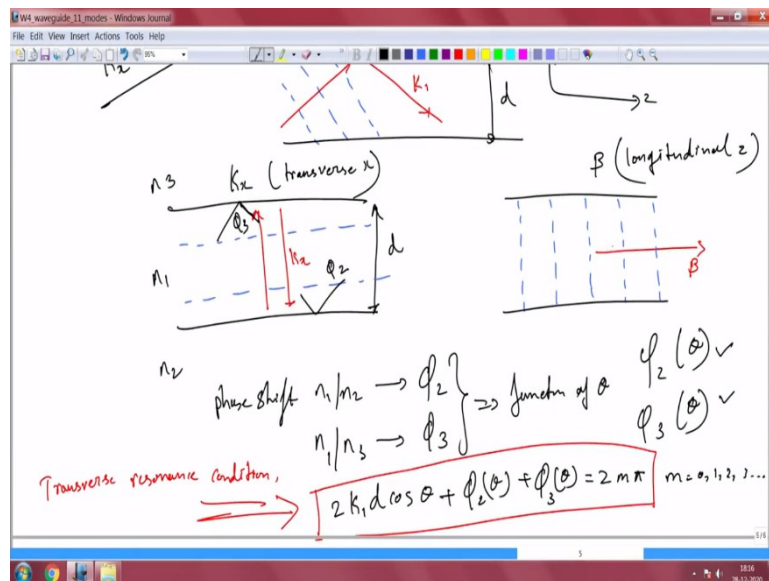 W4_waveguide_11_modes - Windows Journal
File Edit View Insert Actions Tools Help
K₁
d
z
β (longitudinal z)
n3 Kx (transverse x)
φ3
Kx
d
n1
φ2
β
n2
phase shift n1/n2 → φ2
n1/n3 → φ3
⇒ function of θ
φ2 (θ) ✓
φ3 (θ) ✓
Transverse resonance condition,
2 K₁ d cos θ + φ2(θ) + φ3(θ) = 2 m π m = 0, 1, 2, 3...
5/6
5
18:16
28-12-2020